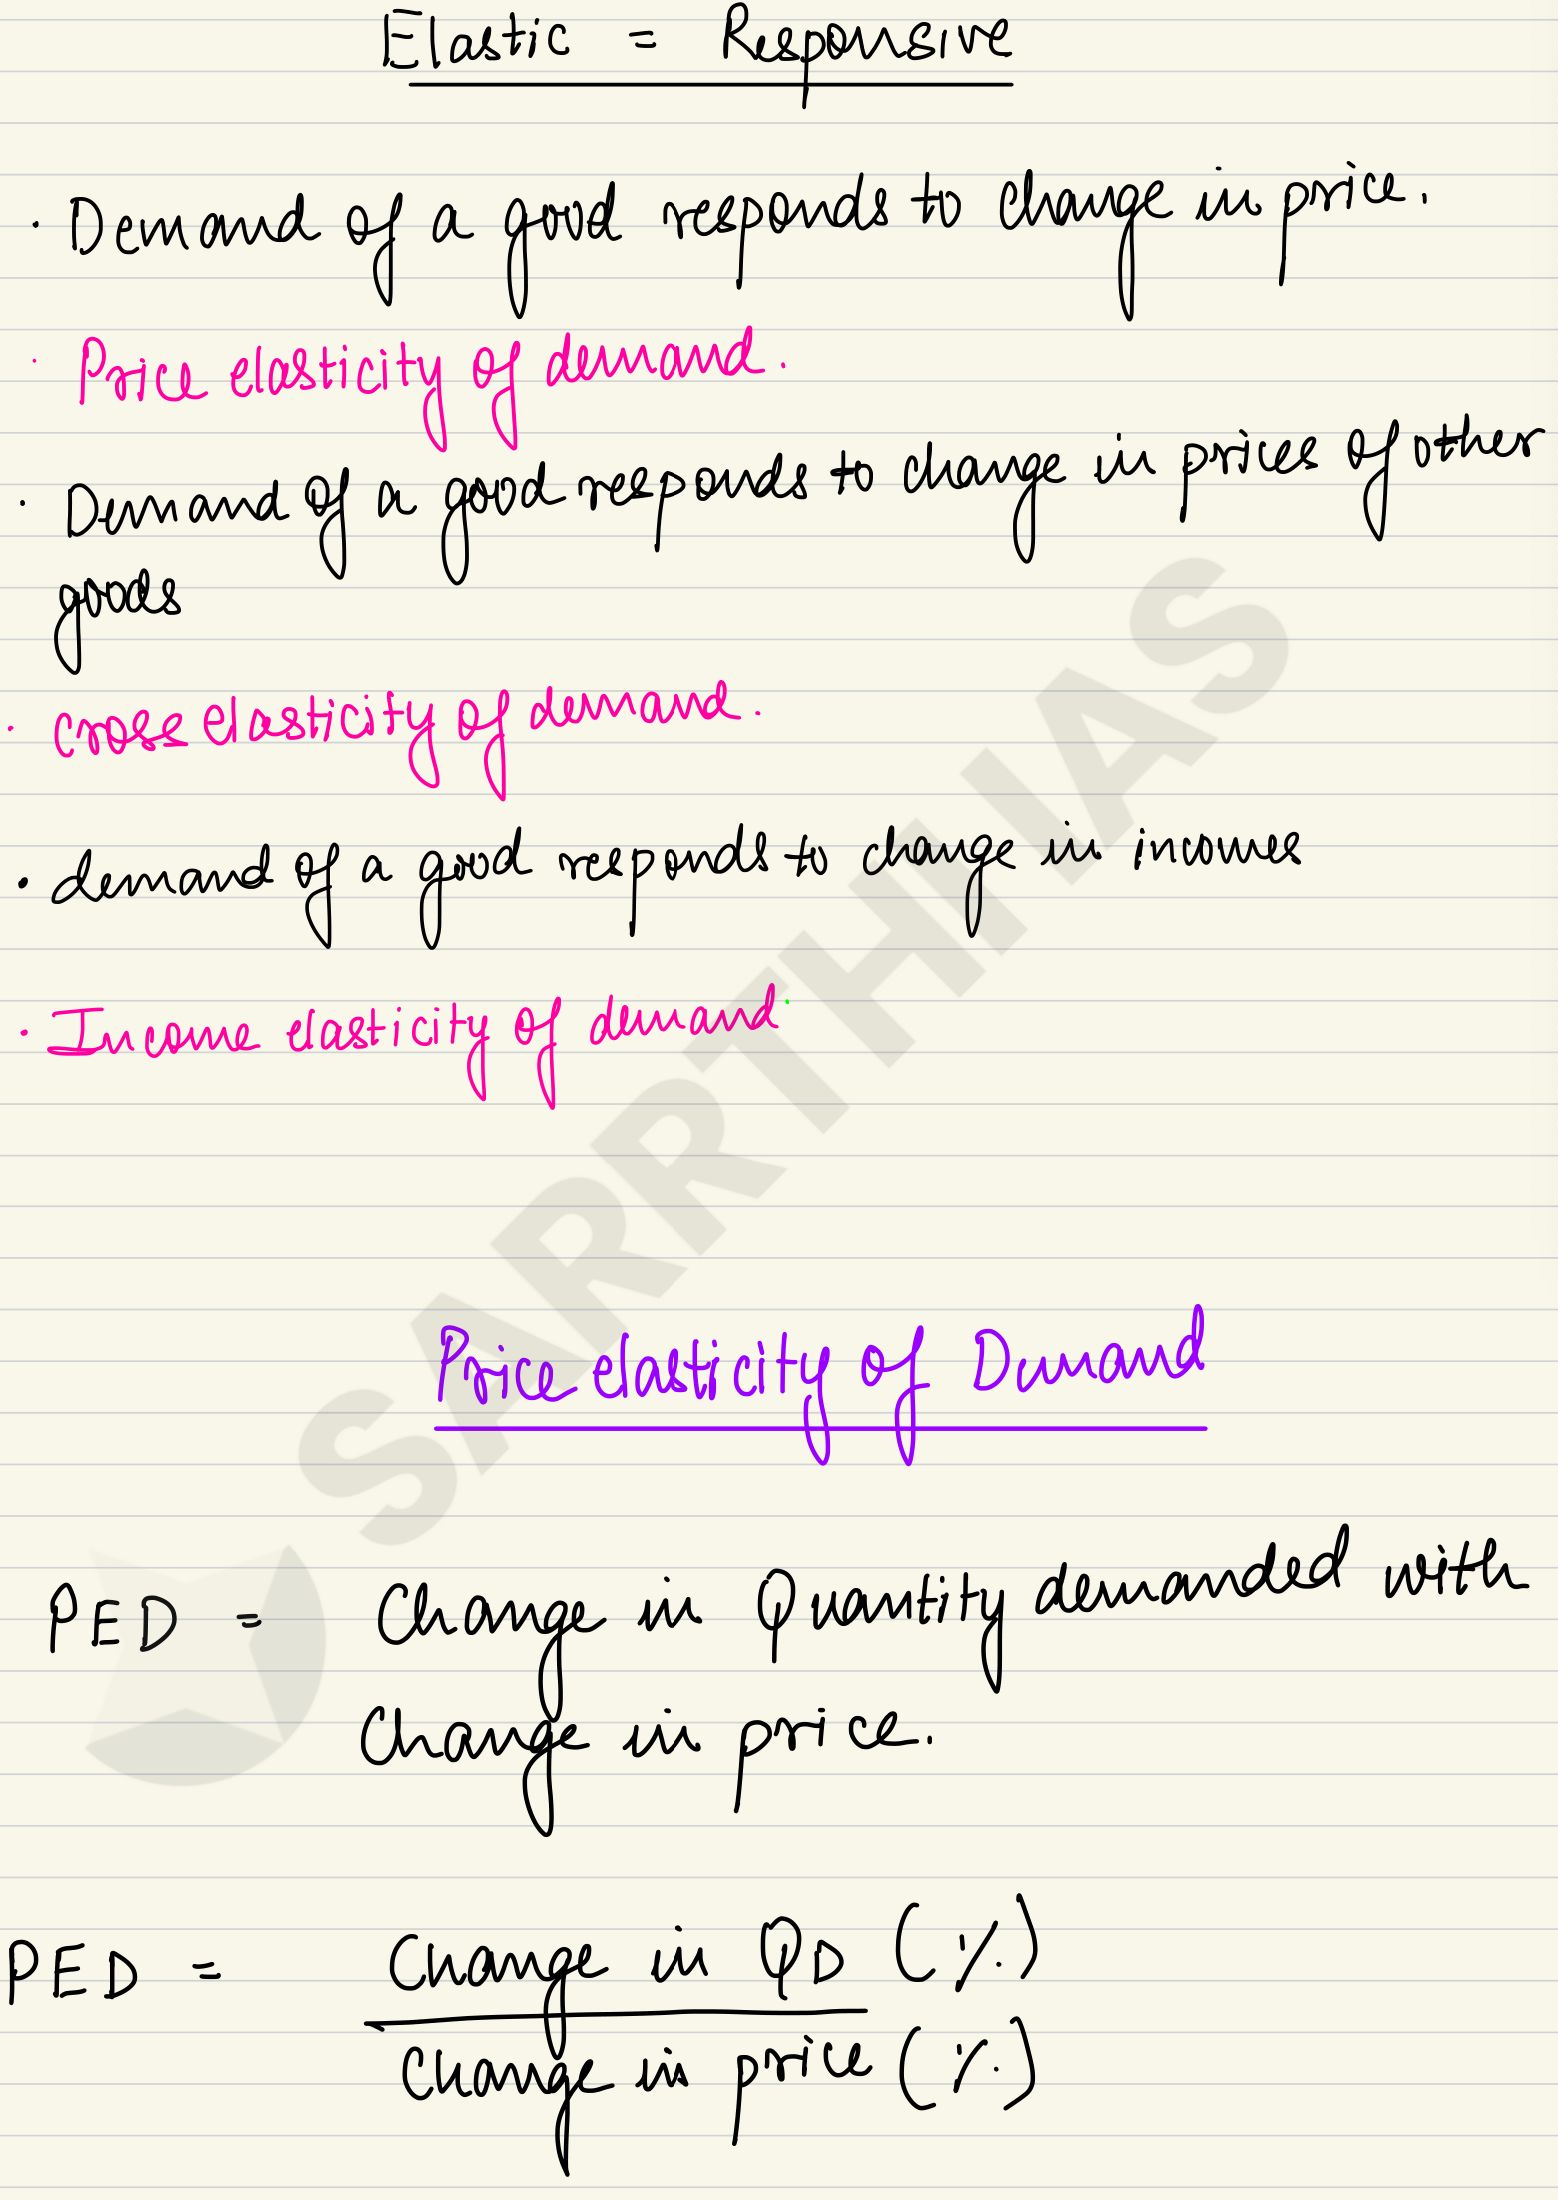 Elastic = Responsive
· Demand of a good responds to change in price.
· Price elasticity of demand.
· Demand of a good responds to change in prices of other
goods
· cross elasticity of demand.
· demand of a good responds to change in incomes
· Income elasticity of demand.
Price elasticity of Demand
PED = Change in Quantity demanded with
Change in price.
PED = Change in QD (%)
Change in price (%)
SARRTHI IAS